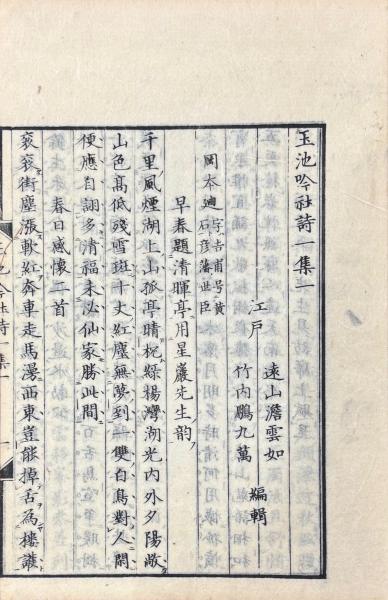 玉池吟社詩一集一
江戸 遠山澹雲如
竹内鵬九萬 編輯
岡本迪 字吉甫号黄石彦藩世臣
早春題清暉亭用星巖先生韵
千里風煙湖上山孤亭晴椀緑楊灣湖光内外夕陽敞
山色高低残雪斑十丈紅塵無夢到一雙白鳥對人閑
便應自詡多清福未必仙家勝此間
春日感懐二首
袞袞街塵漲軟紅奔車走馬漫西東豈能掉舌為樓護
玉池吟社詩一集